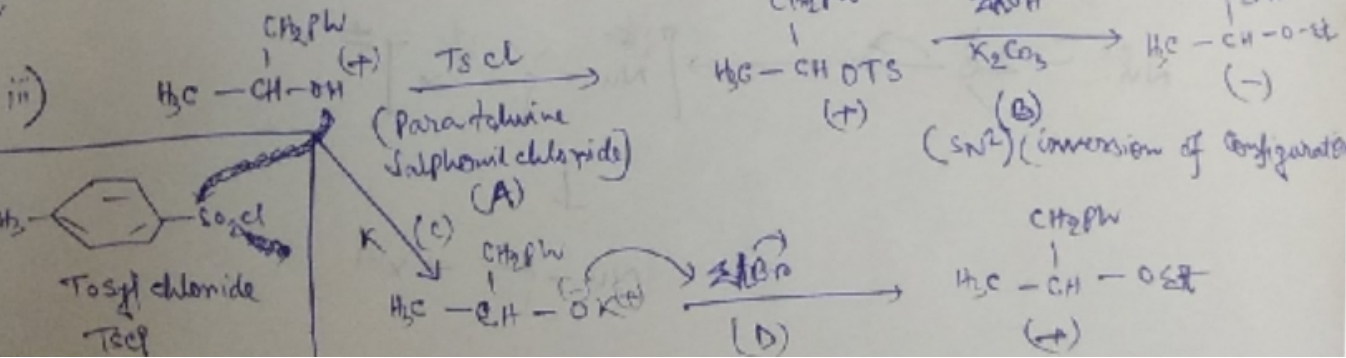 iii)
CH2Ph
H3C - CH-OH (+)
TsCl
(Paratoluine
Sulphonil chloride)
(A)
H3C - CH OTS
(+)
K2CO3
(B)
H3C - CH -O-Et
(-)
(SN2) (inversion of Configurati
SO2Cl
Tosyl chloride
TsCl
K (C)
CH2Ph
H3C - CH - O(-) K(+)
EtBr
(D)
CH2Ph
H3C - CH - OEt
(+)